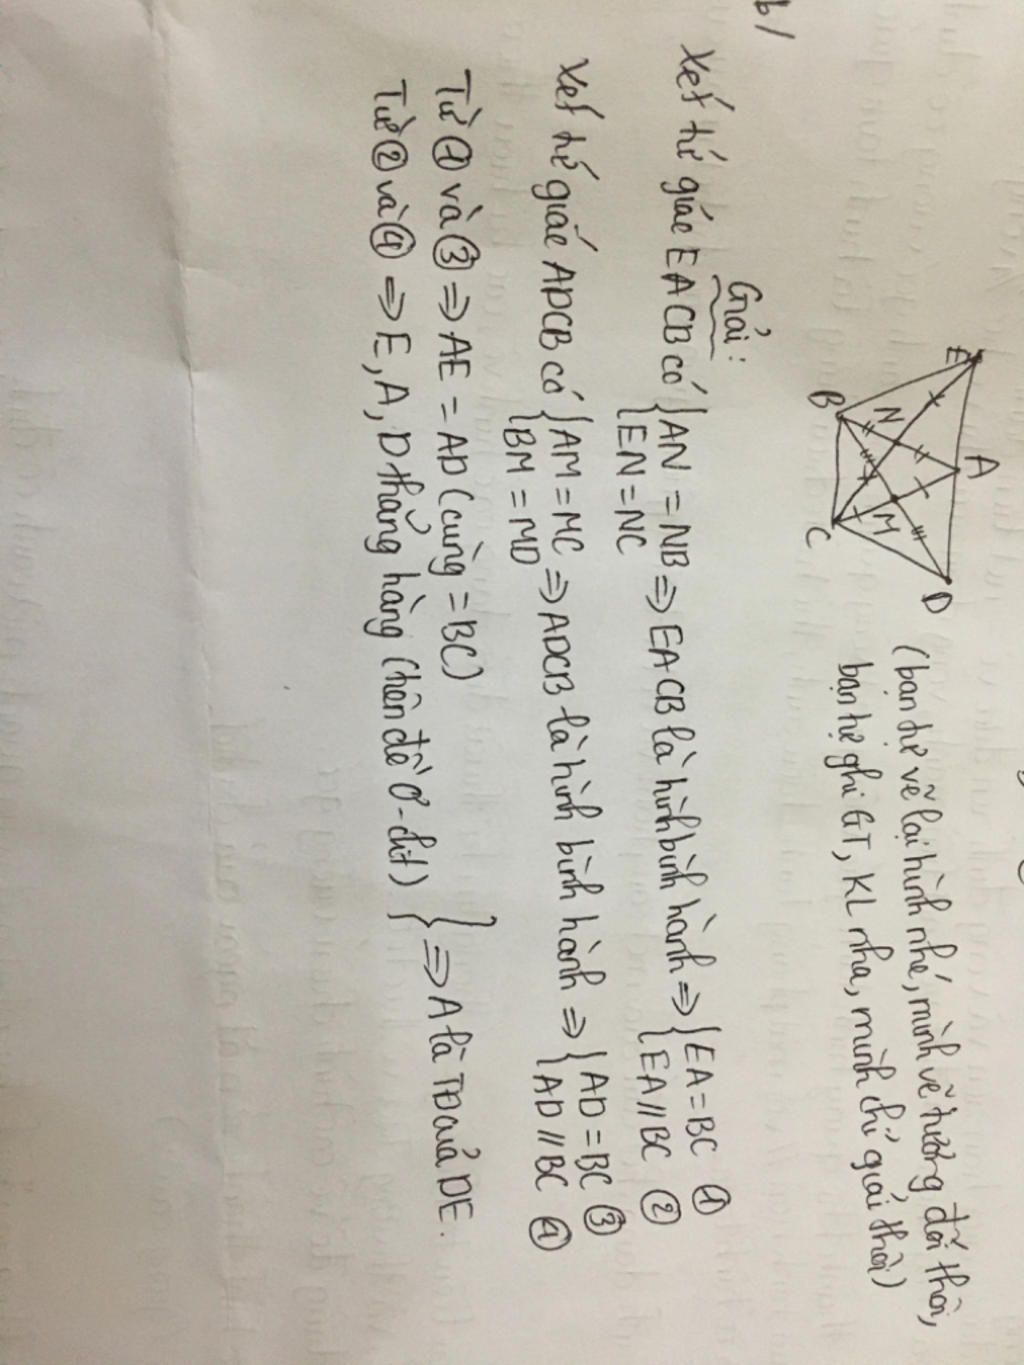 b/
E
A
D
B
N
M
C
(bạn tự vẽ lại hình nhé, mình vẽ tương đối thôi,
bạn tự ghi GT, KL nha, mình chỉ giải thôi)
Giải:
Xét tứ giác EACB có { AN = NB ⇒ EACB là hình bình hành ⇒ { EA = BC ①
EN = NC EA // BC ②
Xét tứ giác ADCB có { AM = MC ⇒ ADCB là hình bình hành ⇒ { AD = BC ③
BM = MD AD // BC ④
Từ ① và ③ ⇒ AE = AD (cùng = BC)
Từ ② và ④ ⇒ E, A, D thẳng hàng (tiên đề Ơ-clit) } ⇒ A là TĐ của DE.